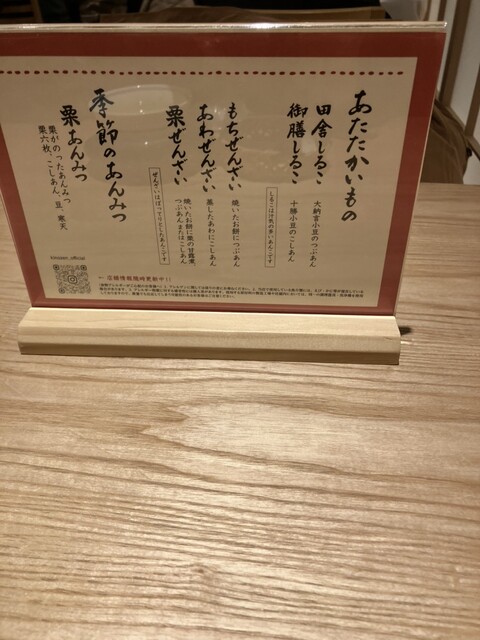 あたたかいもの
田舎しるこ 大納言小豆のつぶあん
御膳しるこ 十勝小豆のこしあん
しるこは汁気の多いあんこです
もちぜんざい 焼いたお餅につぶあん
あわぜんざい 蒸したあわにこしあん
栗ぜんざい 焼いたお餅に栗の甘露煮
つぶあんまたはこしあん
ぜんざいはぽってりとしたあんこです
季節のあんみつ
栗あんみつ
栗がのったあんみつ
栗六枚、こしあん、豆、寒天
← 店舗情報随時更新中！！